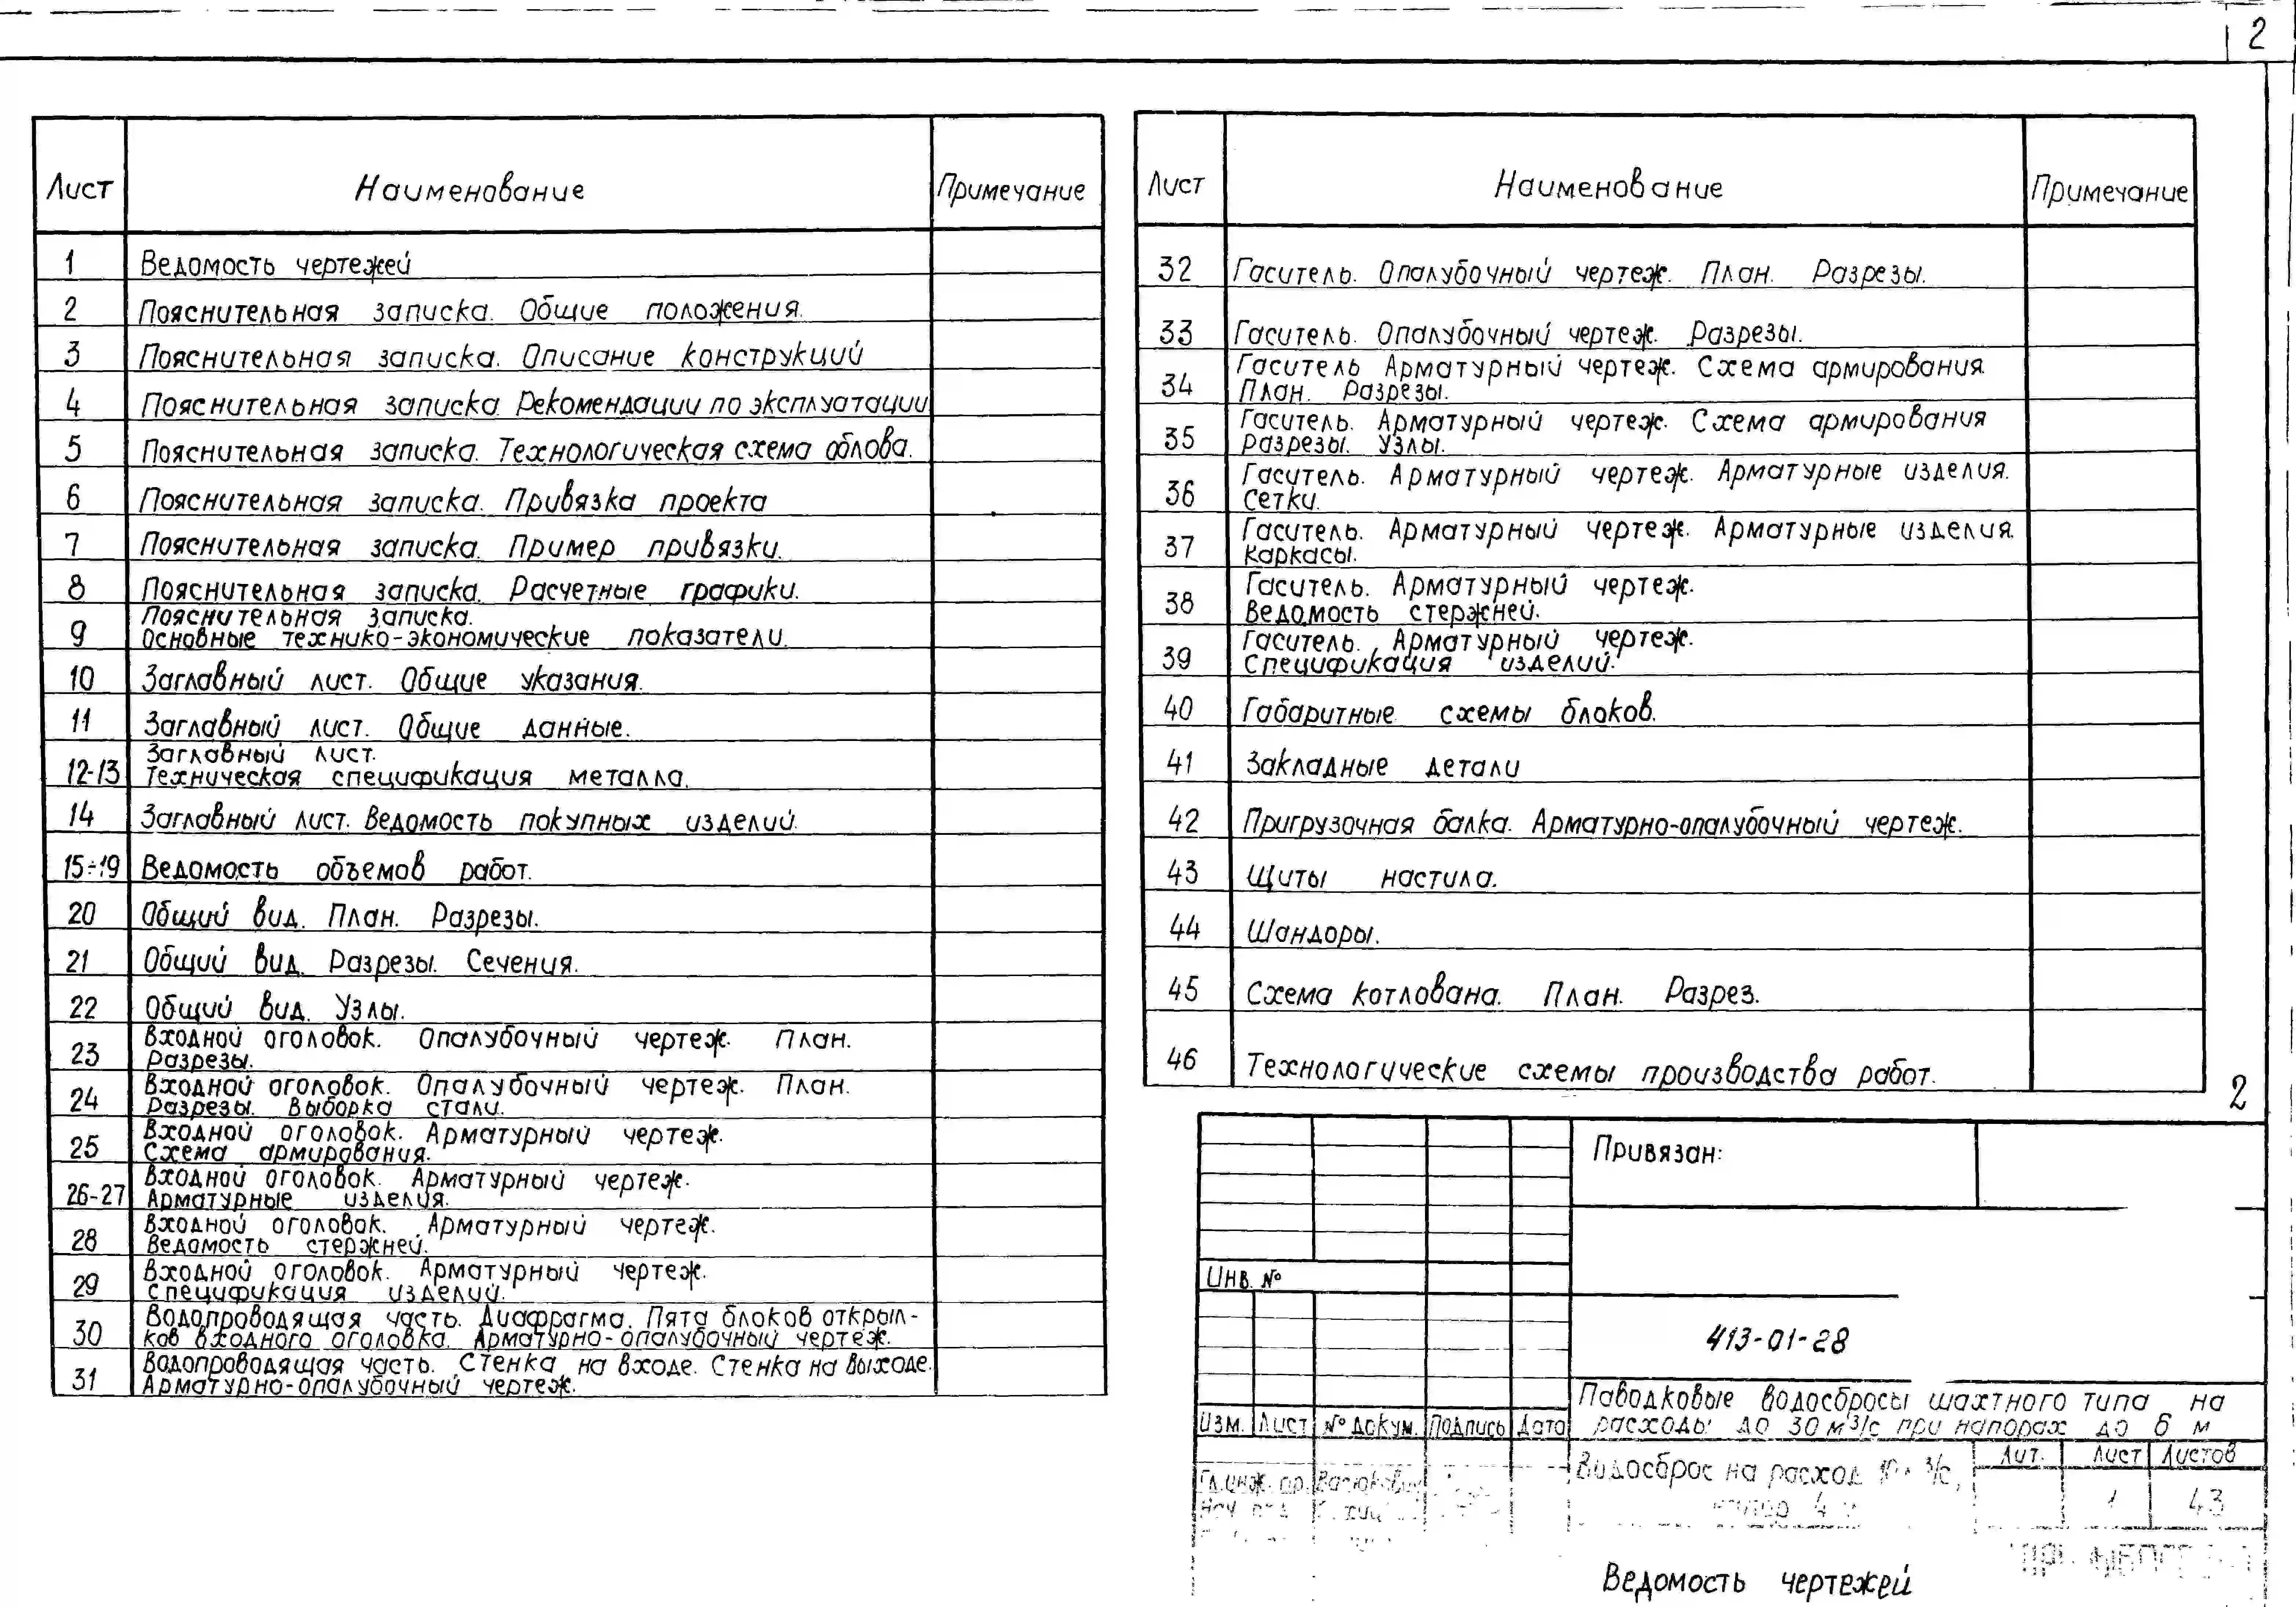 2
Лист Наименование Примечание
1 Ведомость чертежей
2 Пояснительная записка. Общие положения.
3 Пояснительная записка. Описание конструкций
4 Пояснительная записка. Рекомендации по эксплуатации
5 Пояснительная записка. Технологическая схема облова.
6 Пояснительная записка. Привязка проекта
7 Пояснительная записка. Пример привязки.
8 Пояснительная записка. Расчетные графики.
Пояснительная записка.
9 Основные технико-экономические показатели.
10 Заглавный лист. Общие указания.
11 Заглавный лист. Общие данные.
Заглавный лист.
12-13 Техническая спецификация металла.
14 Заглавный лист. Ведомость покупных изделий.
15÷19 Ведомость объемов работ.
20 Общий вид. План. Разрезы.
21 Общий вид. Разрезы. Сечения.
22 Общий вид. Узлы.
Входной оголовок. Опалубочный чертеж. План.
23 Разрезы.
Входной оголовок. Опалубочный чертеж. План.
24 Разрезы. Выборка стали.
Входной оголовок. Арматурный чертеж.
25 Схема армирования.
Входной оголовок. Арматурный чертеж.
26-27 Арматурные изделия.
Входной оголовок. Арматурный чертеж.
28 Ведомость стержней.
Входной оголовок. Арматурный чертеж.
29 Спецификация изделий.
Водопроводящая часть. Диафрагма. Пята блоков открыл-
30 ков входного оголовка. Арматурно-опалубочный чертеж.
Водопроводящая часть. Стенка на входе. Стенка на выходе.
31 Арматурно-опалубочный чертеж.
Лист Наименование Примечание
32 Гаситель. Опалубочный чертеж. План. Разрезы.
33 Гаситель. Опалубочный чертеж. Разрезы.
Гаситель Арматурный чертеж. Схема армирования.
34 План. Разрезы.
Гаситель. Арматурный чертеж. Схема армирования
35 Разрезы. Узлы.
Гаситель. Арматурный чертеж. Арматурные изделия.
36 Сетки.
Гаситель. Арматурный чертеж. Арматурные изделия.
37 Каркасы.
Гаситель. Арматурный чертеж.
38 Ведомость стержней.
Гаситель. Арматурный чертеж.
39 Спецификация изделий.
40 Габаритные схемы блоков.
41 Закладные детали
42 Пригрузочная балка. Арматурно-опалубочный чертеж.
43 Щиты настила.
44 Шандоры.
45 Схема котлована. План. Разрез.
46 Технологические схемы производства работ.
2
Привязан:
Инв. №
413-01-28
Паводковые водосбросы шахтного типа на
расходы до 30 м3/с при напорах до 6 м
Изм. Лист № докум. Подпись Дата
Водосброс на расход 10
Лит. Лист Листов
Гл.инж.пр.
4
1 43
Ведомость чертежей